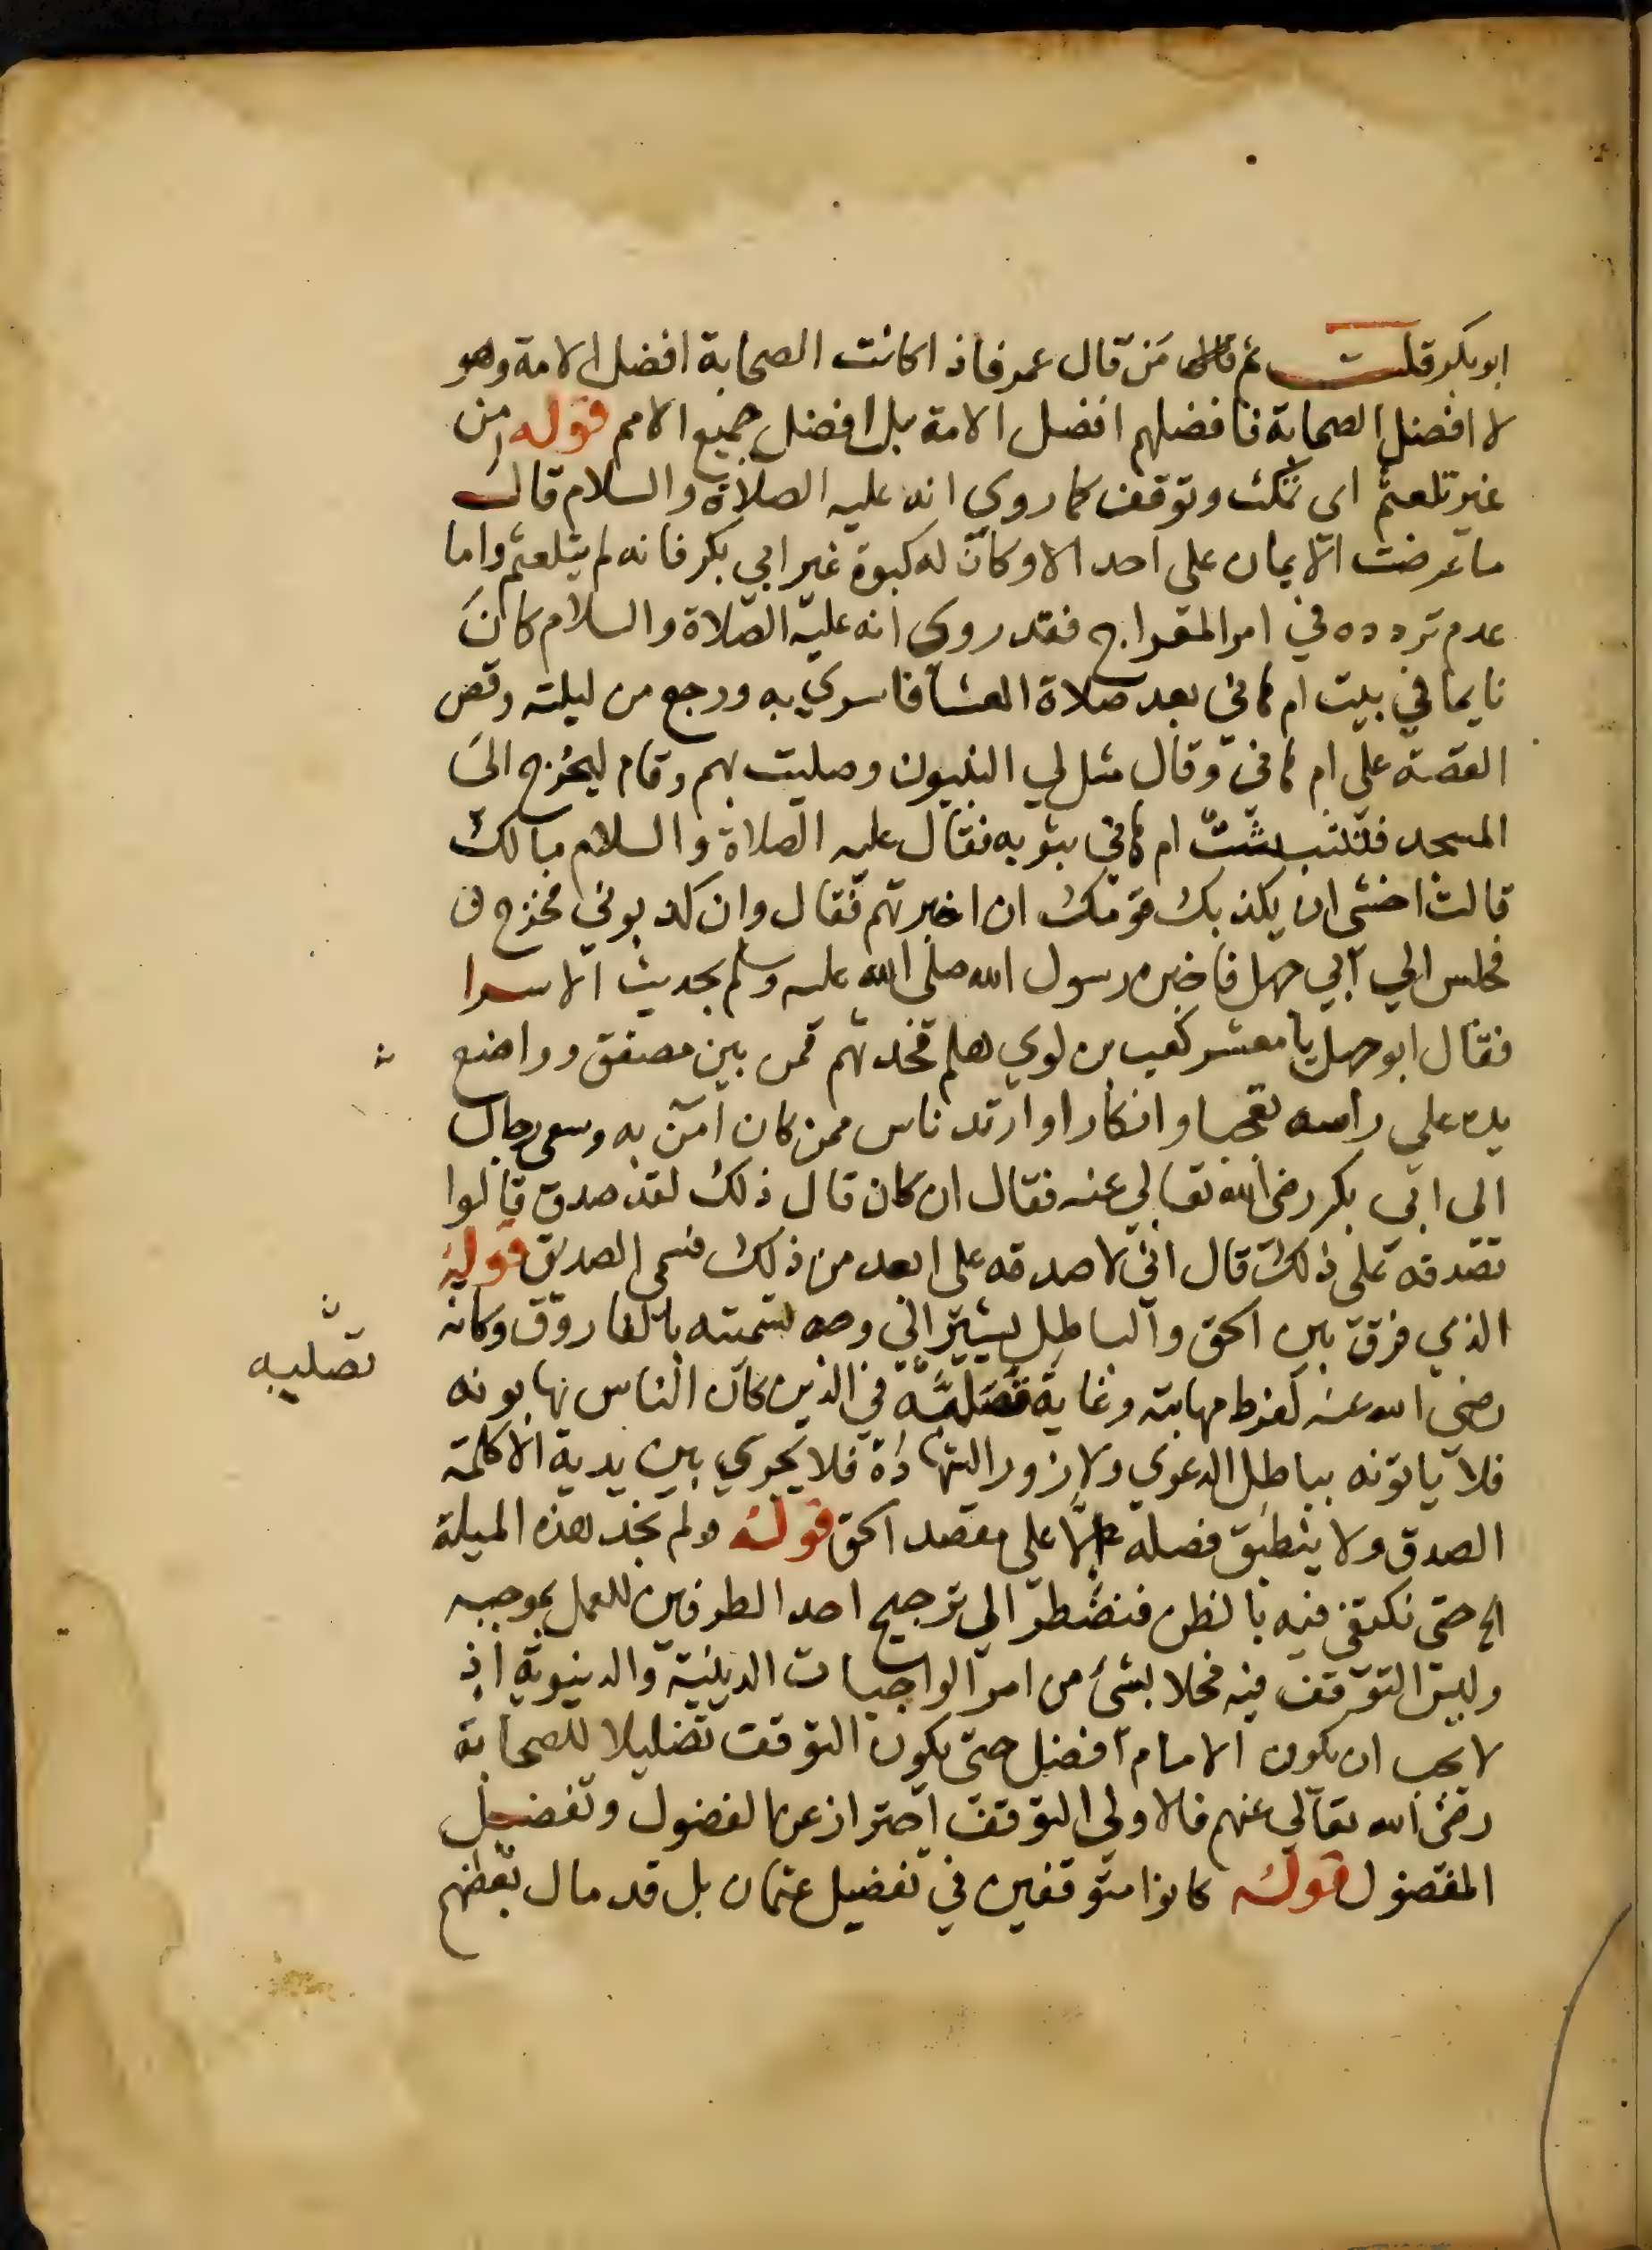 ابو بكر قلت ثم من قال عمر فاذا كانت الصحابة افضل الامة وهو
لا افضل الصحابة فافضلهم افضل الامة بل افضل جميع الامم قوله من
غير تلعثم اى تمكث وتوقف كما روي انه عليه الصلاة والسلام قال
ما عرضت الايمان على احد الا وكان له كبوة غير ابي بكر فانه لم يتلعثم واما
عدم تردده في امر المعراج فقد روى انه عليه الصلاة والسلام كان
نايما في بيت ام هانى بعد صلاة العشا فاسري به ورجع من ليلته وقص
القصة على ام هانى وقال مثل لي النبيون وصليت بهم وقام ليخرج الى
المسجد فتشبثت ام هاني بثوبه فقال عليه الصلاة والسلام مالك
قالت اخشى ان يكذبك قومك ان اخبرتهم فقال وان كذبوني فخرج ف
فجلس الي ابي جهل فاخبره رسول الله صلى الله عليه وسلم بحديث الاسرا
فقال ابو جهل يا معشر كعب بن لوي هلم فحدثهم فمن بين مصفق وواضع
يده على راسه تعجبا وانكارا وارتد ناس ممن كان امن به وسعى رجال
الى ابي بكر رضى الله تعالى عنه فقال ان كان قال ذلك لقد صدق قالوا
تصدقه على ذلك قال اني لاصدقه على ابعد من ذلك فسمى الصديق قوله
الذي فرق بين الحق والباطل يشير الى وجه تسميته بالفاروق وكانه
رضى الله عنه لفرط مهابته وغاية تصلبه في الدين كان الناس يهابونه
تصلبه
فلا ياتونه بباطل الدعوى ولا زور الشهادة فلا يجري بين يديه الا كلمة
الصدق ولا ينطبق فصله الا على مقصد الحق قوله ولم نجد هذه المسلة
الخ حتى نكتفى فيه بالظن فنضطر الي ترجيح احد الطرفين للعمل بموجبه
وليس التوقف فيه مخلا بشئ من امر الواجبات الدينية والدنيوية اذ
لا يجب ان يكون الامام افضل حتى يكون التوقف تضليلا للصحابة
رضى الله تعالى عنهم فالاولى التوقف احتراز عن الفضول وتفضيل
المفضول قوله كانوا متوقفين في تفضيل عثمان بل قد مال بعضهم